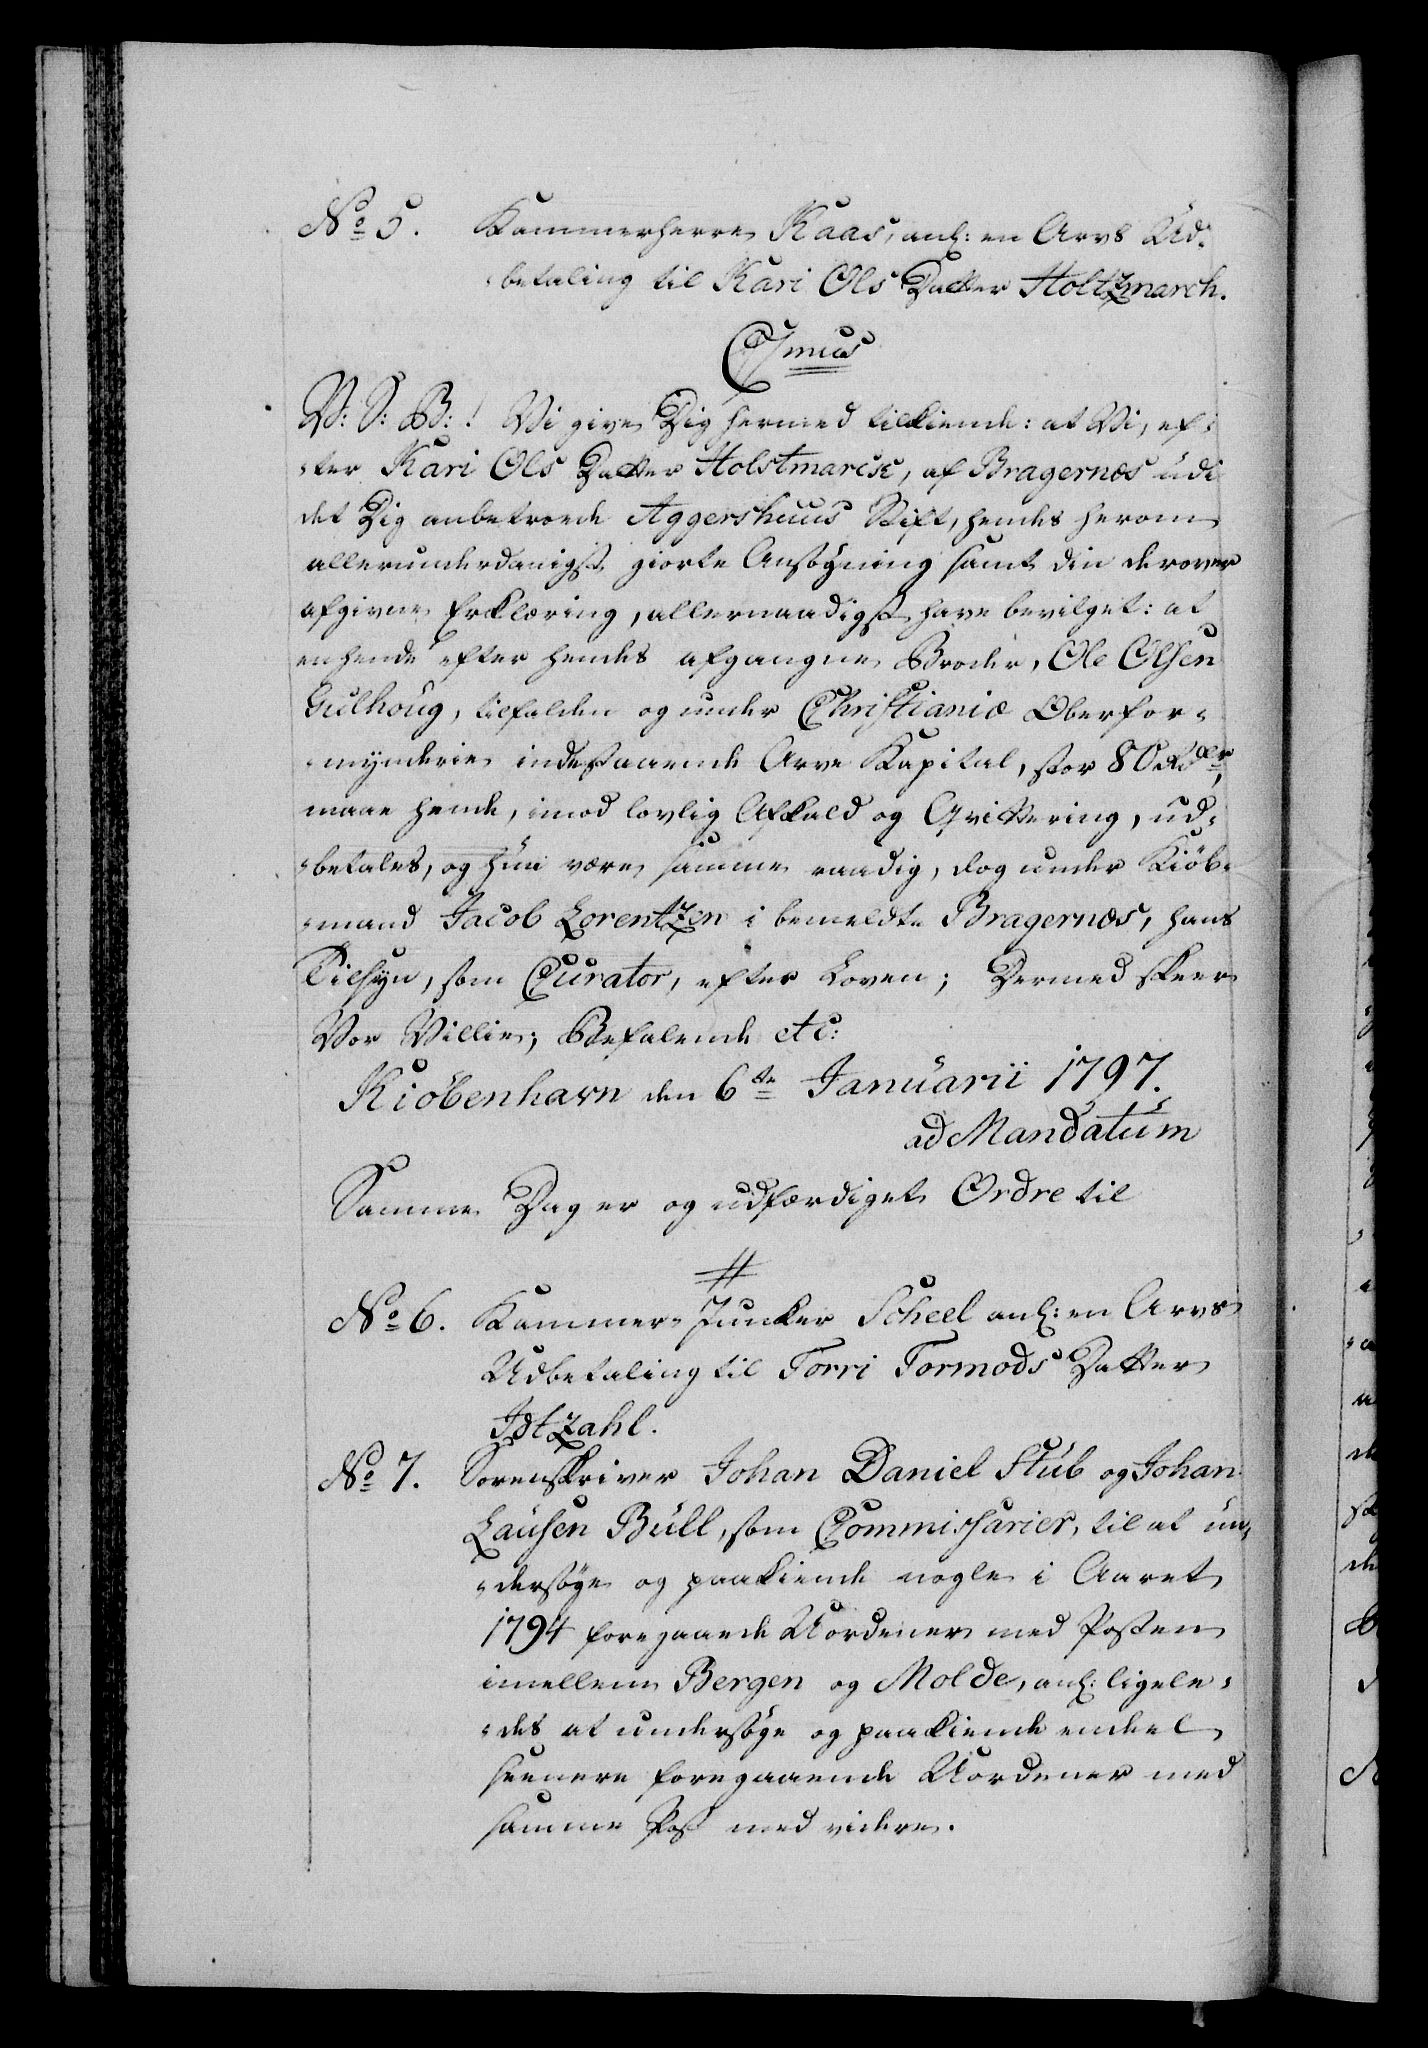 No 5. Kammerherre Kaas, anl: en Arvs Ud¬
betaling til Kari Ols Datter Holtzmarch.
C7mus
V: S: B: ! Vi give Dig hermed tilkiende: at Vi, ef¬
ter Kari Ols Datter Holstmarck, af Bragernæs udi
det Dig anbetroede Aggershuus Stift, hendes herom
allerunderdanigst giorte Ansøgning samt din derover
afgivne Erklæring, allernaadigst have bevilget: at
en hende efter hendes afgangne Broder, Ole Olsen
Gulhoug, tilfalden og under Christianiæ Oberfor¬
mynderie indestaaende Arve Kapital, stor 80 Rdlr,
maae hende, imod lovlig Afkald og Qvittering, ud¬
betales, og hun være samme raadig, dog under Kiöb¬
mand Jacob Lorentzen i bemeldte Bragernæs, hans
Tilsyn, som Curator, efter Loven; Dermed skeer
Vor Villie; Befalende etc:
Kiöbenhavn den 6te Januarii 1797.
ad Mandatum
Samme Dag er og udfærdiget Ordre til
No 6. Kammer-Junker Scheel anl: en Arvs
Udbetaling til Torri Tormods Datter
Idtzahl.
No 7. Sorenskriver Johan Daniel Stub og Johan
Lausen Bull, som Commissarier, til at un¬
dersøge og paakiende nogle i Aaret
1794 foregaaende Uordener med Posten
imellem Bergen og Molde, anl: ligele¬
des at undersøge og paakiende endeel
seenere foregaaende Uordener med
samme Post med videre.